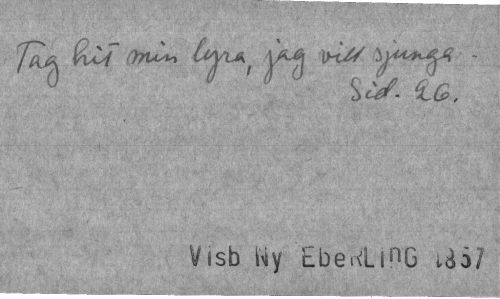 Tag hit min lyra, jag vill sjunga -
Sid. 26.
Visb Ny EbeRLInG 1857